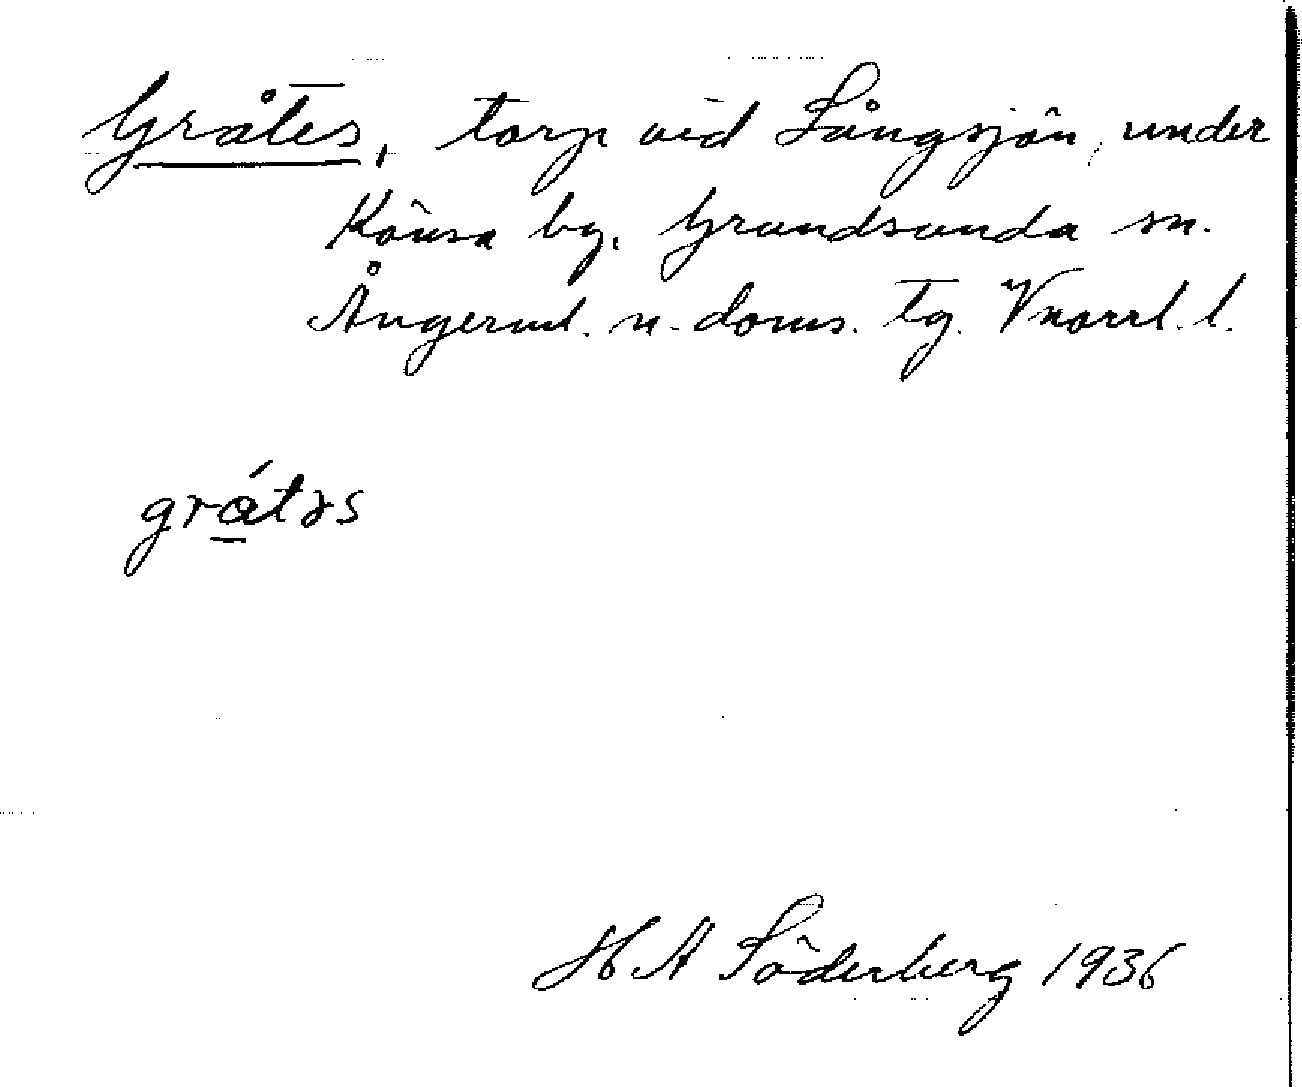 Gråtes, torp vid Långsjön, under
Könsa by, Grundsunda sn.
Ångerml. n. doms. tg. Vnorrl. l.
grátəs
H A Söderberg 1936